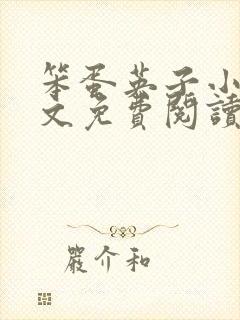 笨蛋英子小
文免費閱讀
嚴介和